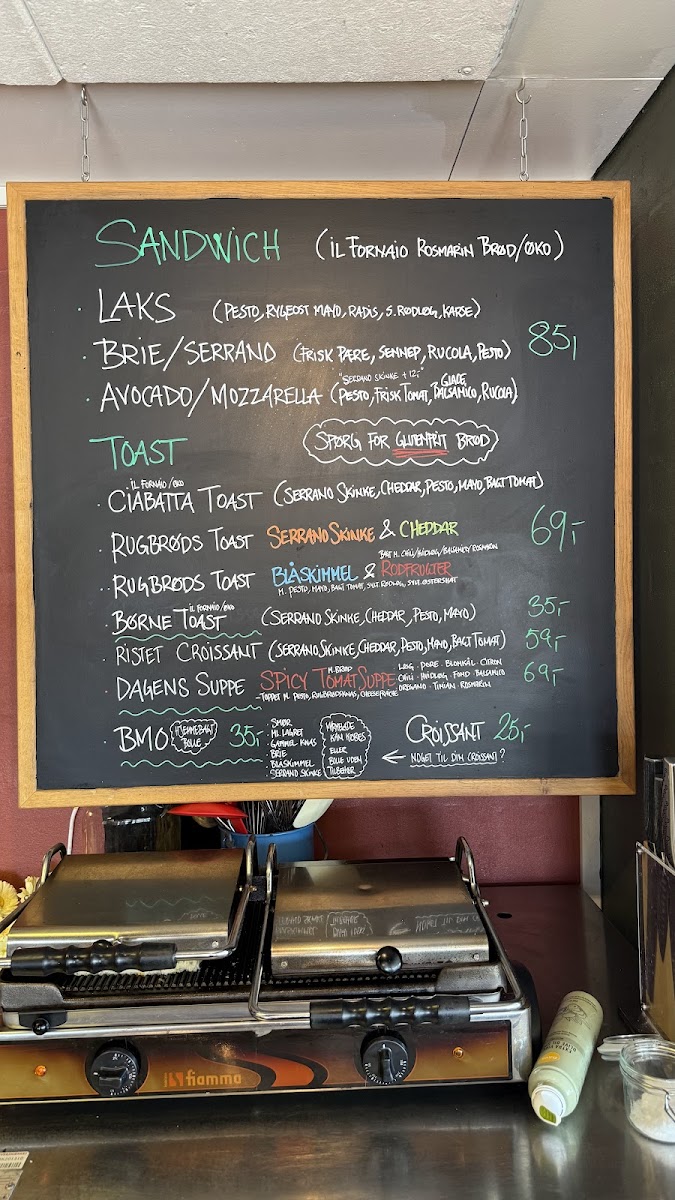 SANDWICH (IL FORNAIO ROSMARIN BRØD/ØKO)
· LAKS (PESTO, RYGEOST MAYO, RADIS, S. RØDLØG, KARSE)
· BRIE/SERRANO (FRISK PÆRE, SENNEP, RUCOLA, PESTO) 85,-
"SERRANO SKINKE + 12,-"
· AVOCADO/MOZZARELLA (PESTO, FRISK TOMAT, BALSAMICO, RUCOLA)
TOAST SPØRG FOR GLUTENFRIT BRØD
IL FORNAIO/ØKO
· CIABATTA TOAST (SERRANO SKINKE, CHEDDAR, PESTO, MAYO, BAGT TOMAT)
· RUGBRØDS TOAST SERRANO SKINKE & CHEDDAR 69,-
BAGT M. CHILI/HVIDLØG/BALSAMICO/ROSMARIN
· RUGBRØDS TOAST BLÅSKIMMEL & RODFRUGTER
M. PESTO, MAYO, BAGT TOMAT, SYLT. RØDLØG, SYLT. ØSTERSHAT
IL FORNAIO/ØKO
· BØRNE TOAST (SERRANO SKINKE, CHEDDAR, PESTO, MAYO) 35,-
· RISTET CROISSANT (SERRANO SKINKE, CHEDDAR, PESTO, MAYO, BAGT TOMAT) 59,-
M. BRØD
· DAGENS SUPPE SPICY TOMAT SUPPE 69,-
LØG · PORE · BLOMKÅL · CITRON
CHILI · HVIDLØG · FOND · BALSAMICO
OREGANO · TIMIAN · ROSMARIN
- TOPPET M. PESTO, RUGBRØDSKNAS,
· BMO HJEMMEBAGT BOLLE 35,-
· SMØR
· ML. LAGRET
· GAMMEL KNAS
· BRIE
· BLÅSKIMMEL
· SERRANO SKINKE
KAN KØBES
ELLER
BOLLE UDEN
TILBEHØR
CROISSANT 25,-
← NOGET TIL DIN CROISSANT?
fiamma